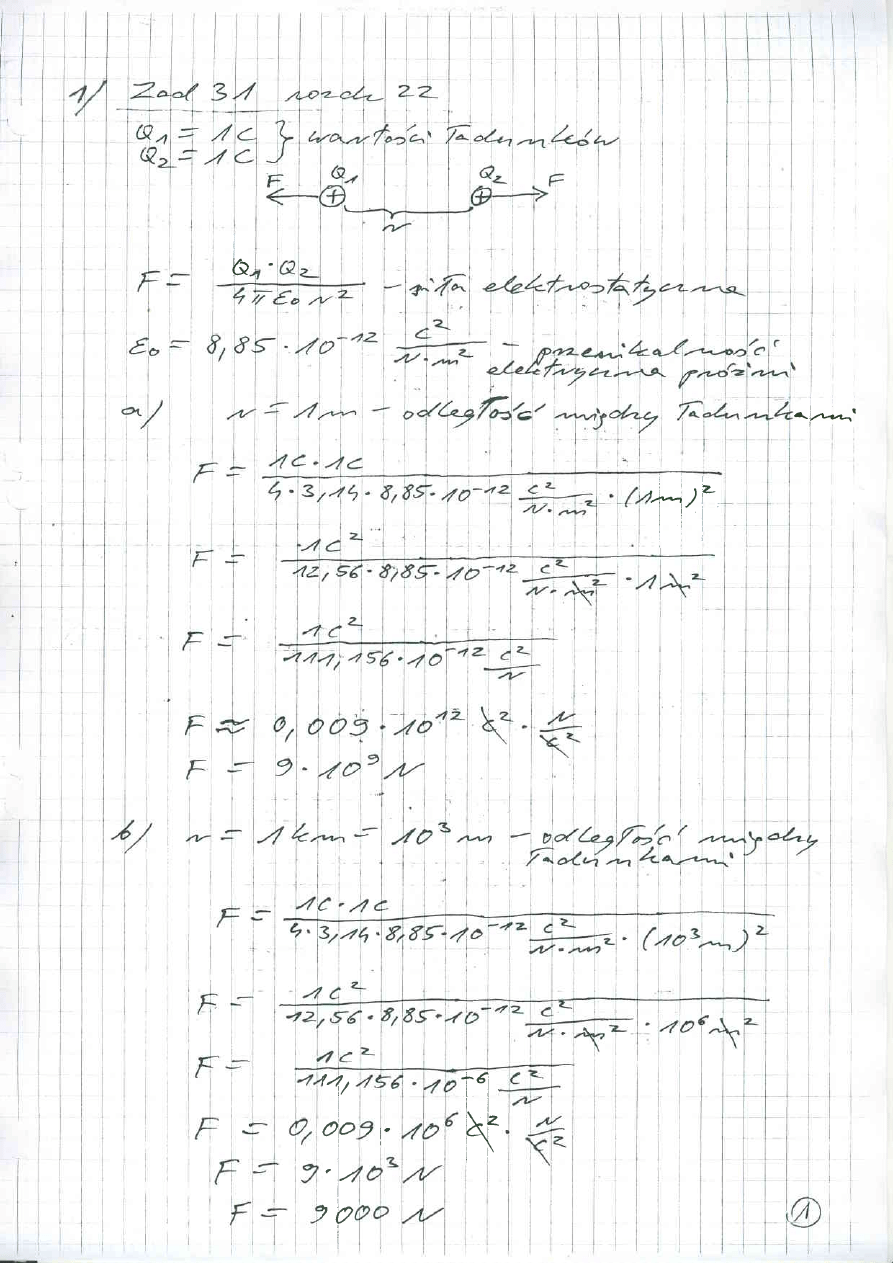 1) Zad 31 rozdz 22
Q₁ = 1C } wartości ładunków
Q₂ = 1C
F Q₁ Q₂ F
⊕ ⊕
r
F = Q₁·Q₂ / 4πε₀r² – siła elektrostatyczna
ε₀ = 8,85·10⁻¹² C²/N·m² – przenikalność
elektryczna próżni
a) r = 1m – odległość między ładunkami
F = 1C·1C / 4·3,14·8,85·10⁻¹² C²/N·m² · (1m)²
F = 1C² / 12,56·8,85·10⁻¹² C²/N·m² · 1m²
F = 1C² / 111,156·10⁻¹² C²/N
F ≈ 0,009·10¹² C² · N/C²
F = 9·10⁹ N
b) r = 1km = 10³ m – odległość między
ładunkami
F = 1C·1C / 4·3,14·8,85·10⁻¹² C²/N·m² · (10³m)²
F = 1C² / 12,56·8,85·10⁻¹² C²/N·m² · 10⁶ m²
F = 1C² / 111,156·10⁻⁶ C²/N
F = 0,009·10⁶ C² · N/C²
F = 9·10³ N
F = 9000 N
1